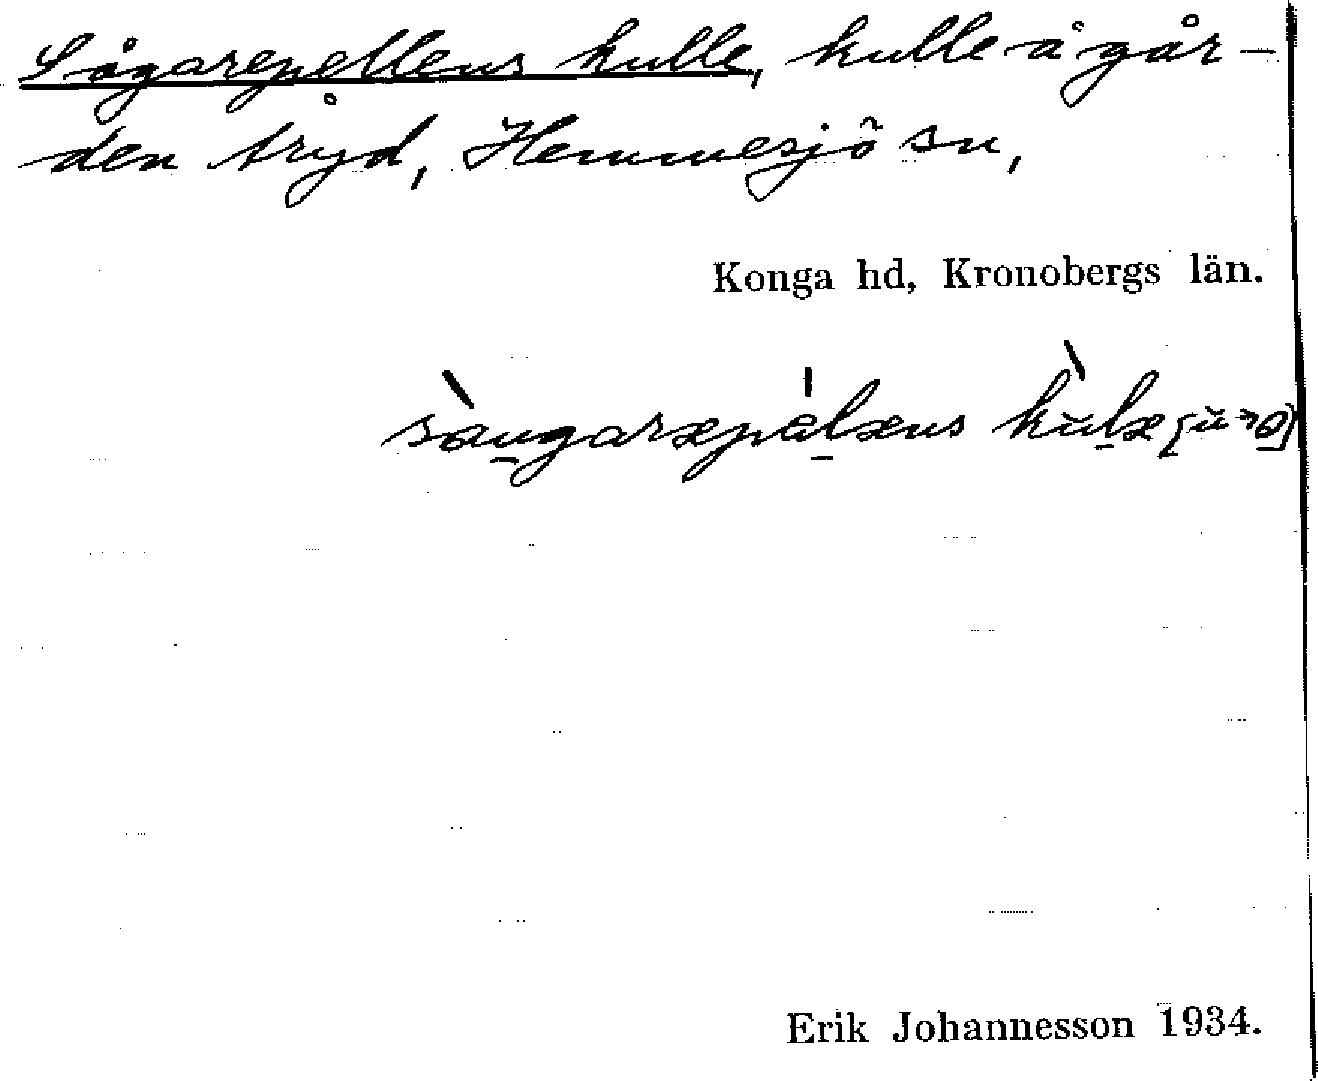 Sågarepellens kulle, kulle å går-
den tryd, Hemmesjö sn,
Konga hd, Kronobergs län.
sàugaræpàlæns kùlæ
Erik Johannesson 1934.